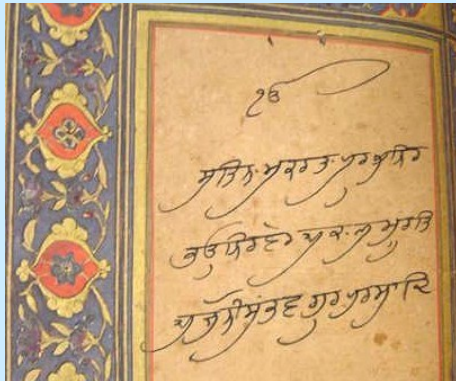 ੴ
ਸਤਿਨਾਮੁਕਰਤਾਪੁਰਖੁਨਿਰ
ਭਉਨਿਰਵੈਰੁਅਕਾਲਮੂਰਤਿ
ਅਜੂਨੀਸੈਭੰਗੁਰਪ੍ਰਸਾਦਿ